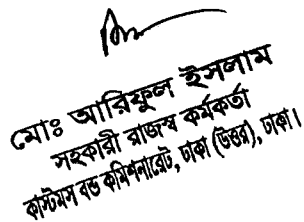 মোঃ আরিফুল ইসলাম
সহকারী রাজস্ব কর্মকর্তা
কাস্টমস বন্ড কমিশনারেট, ঢাকা (উত্তর), ঢাকা।